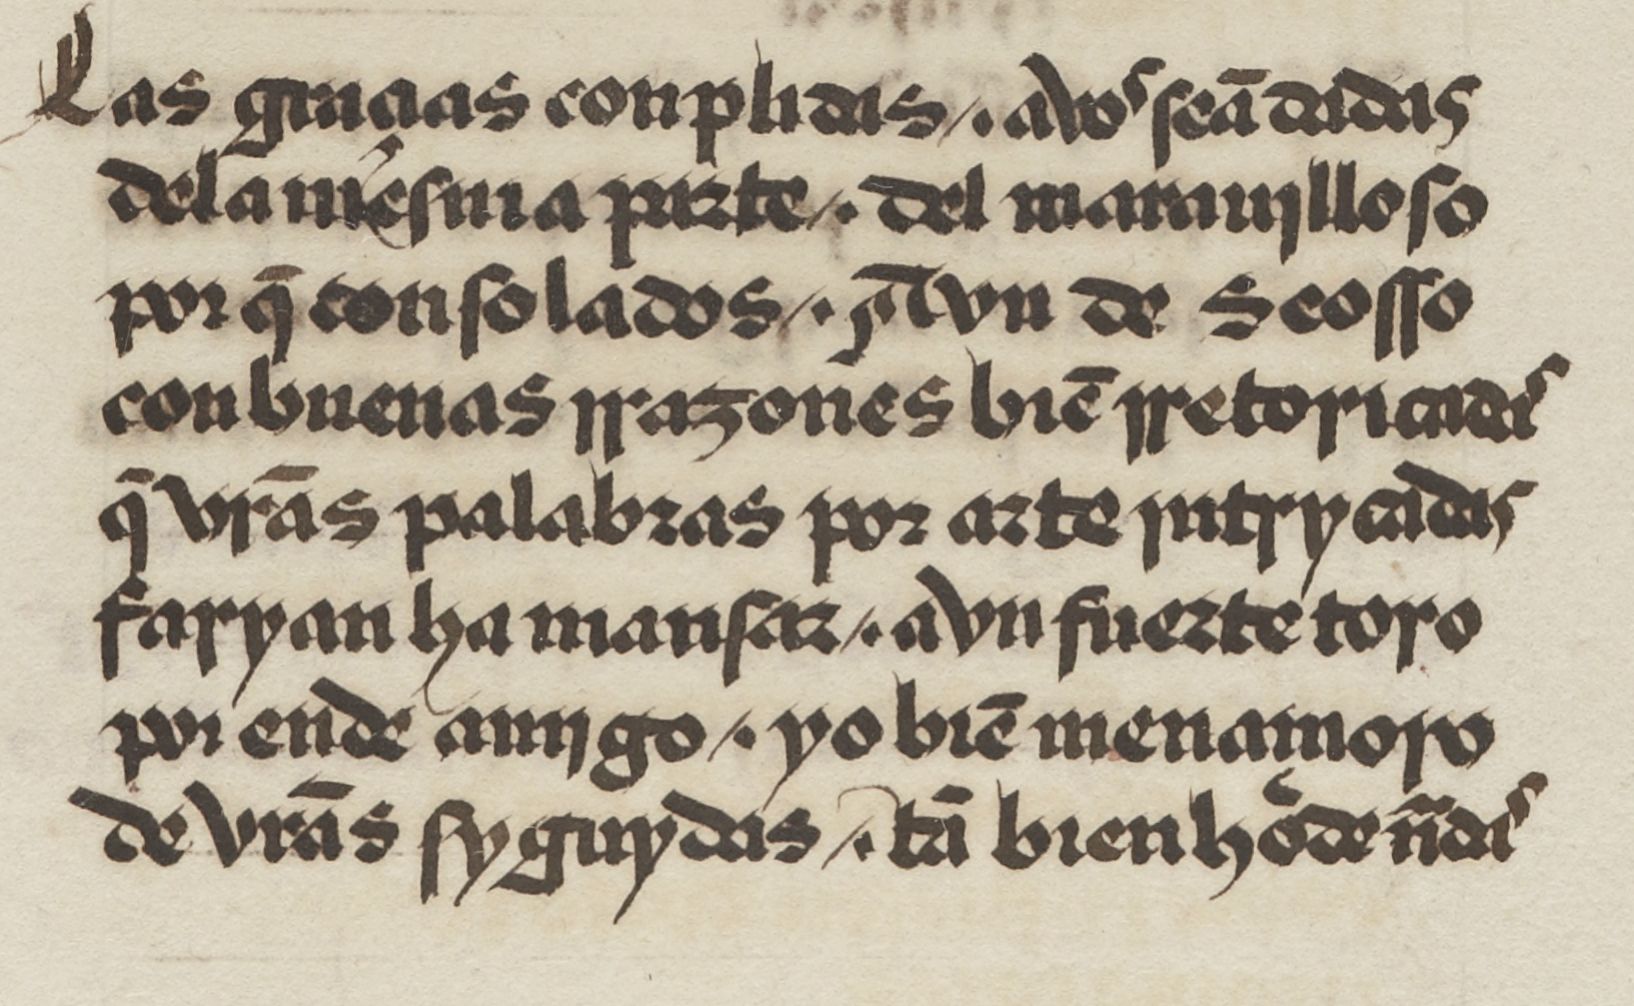 Las graçias conplidas /. avos seã dadas
dela mesma parte /. del maravijlloso
por q̃ consolados /. q̃l vn deseosso
con buenas rrazones biẽ rretoricadas
q̃ vr̃as palabras por arte yntrycadas
faryan ha mansar /. avn fuerte toro
por ende amijgo /. yo biẽ menamoro
de vr̃as syguydas /. tã bien hordeñdas